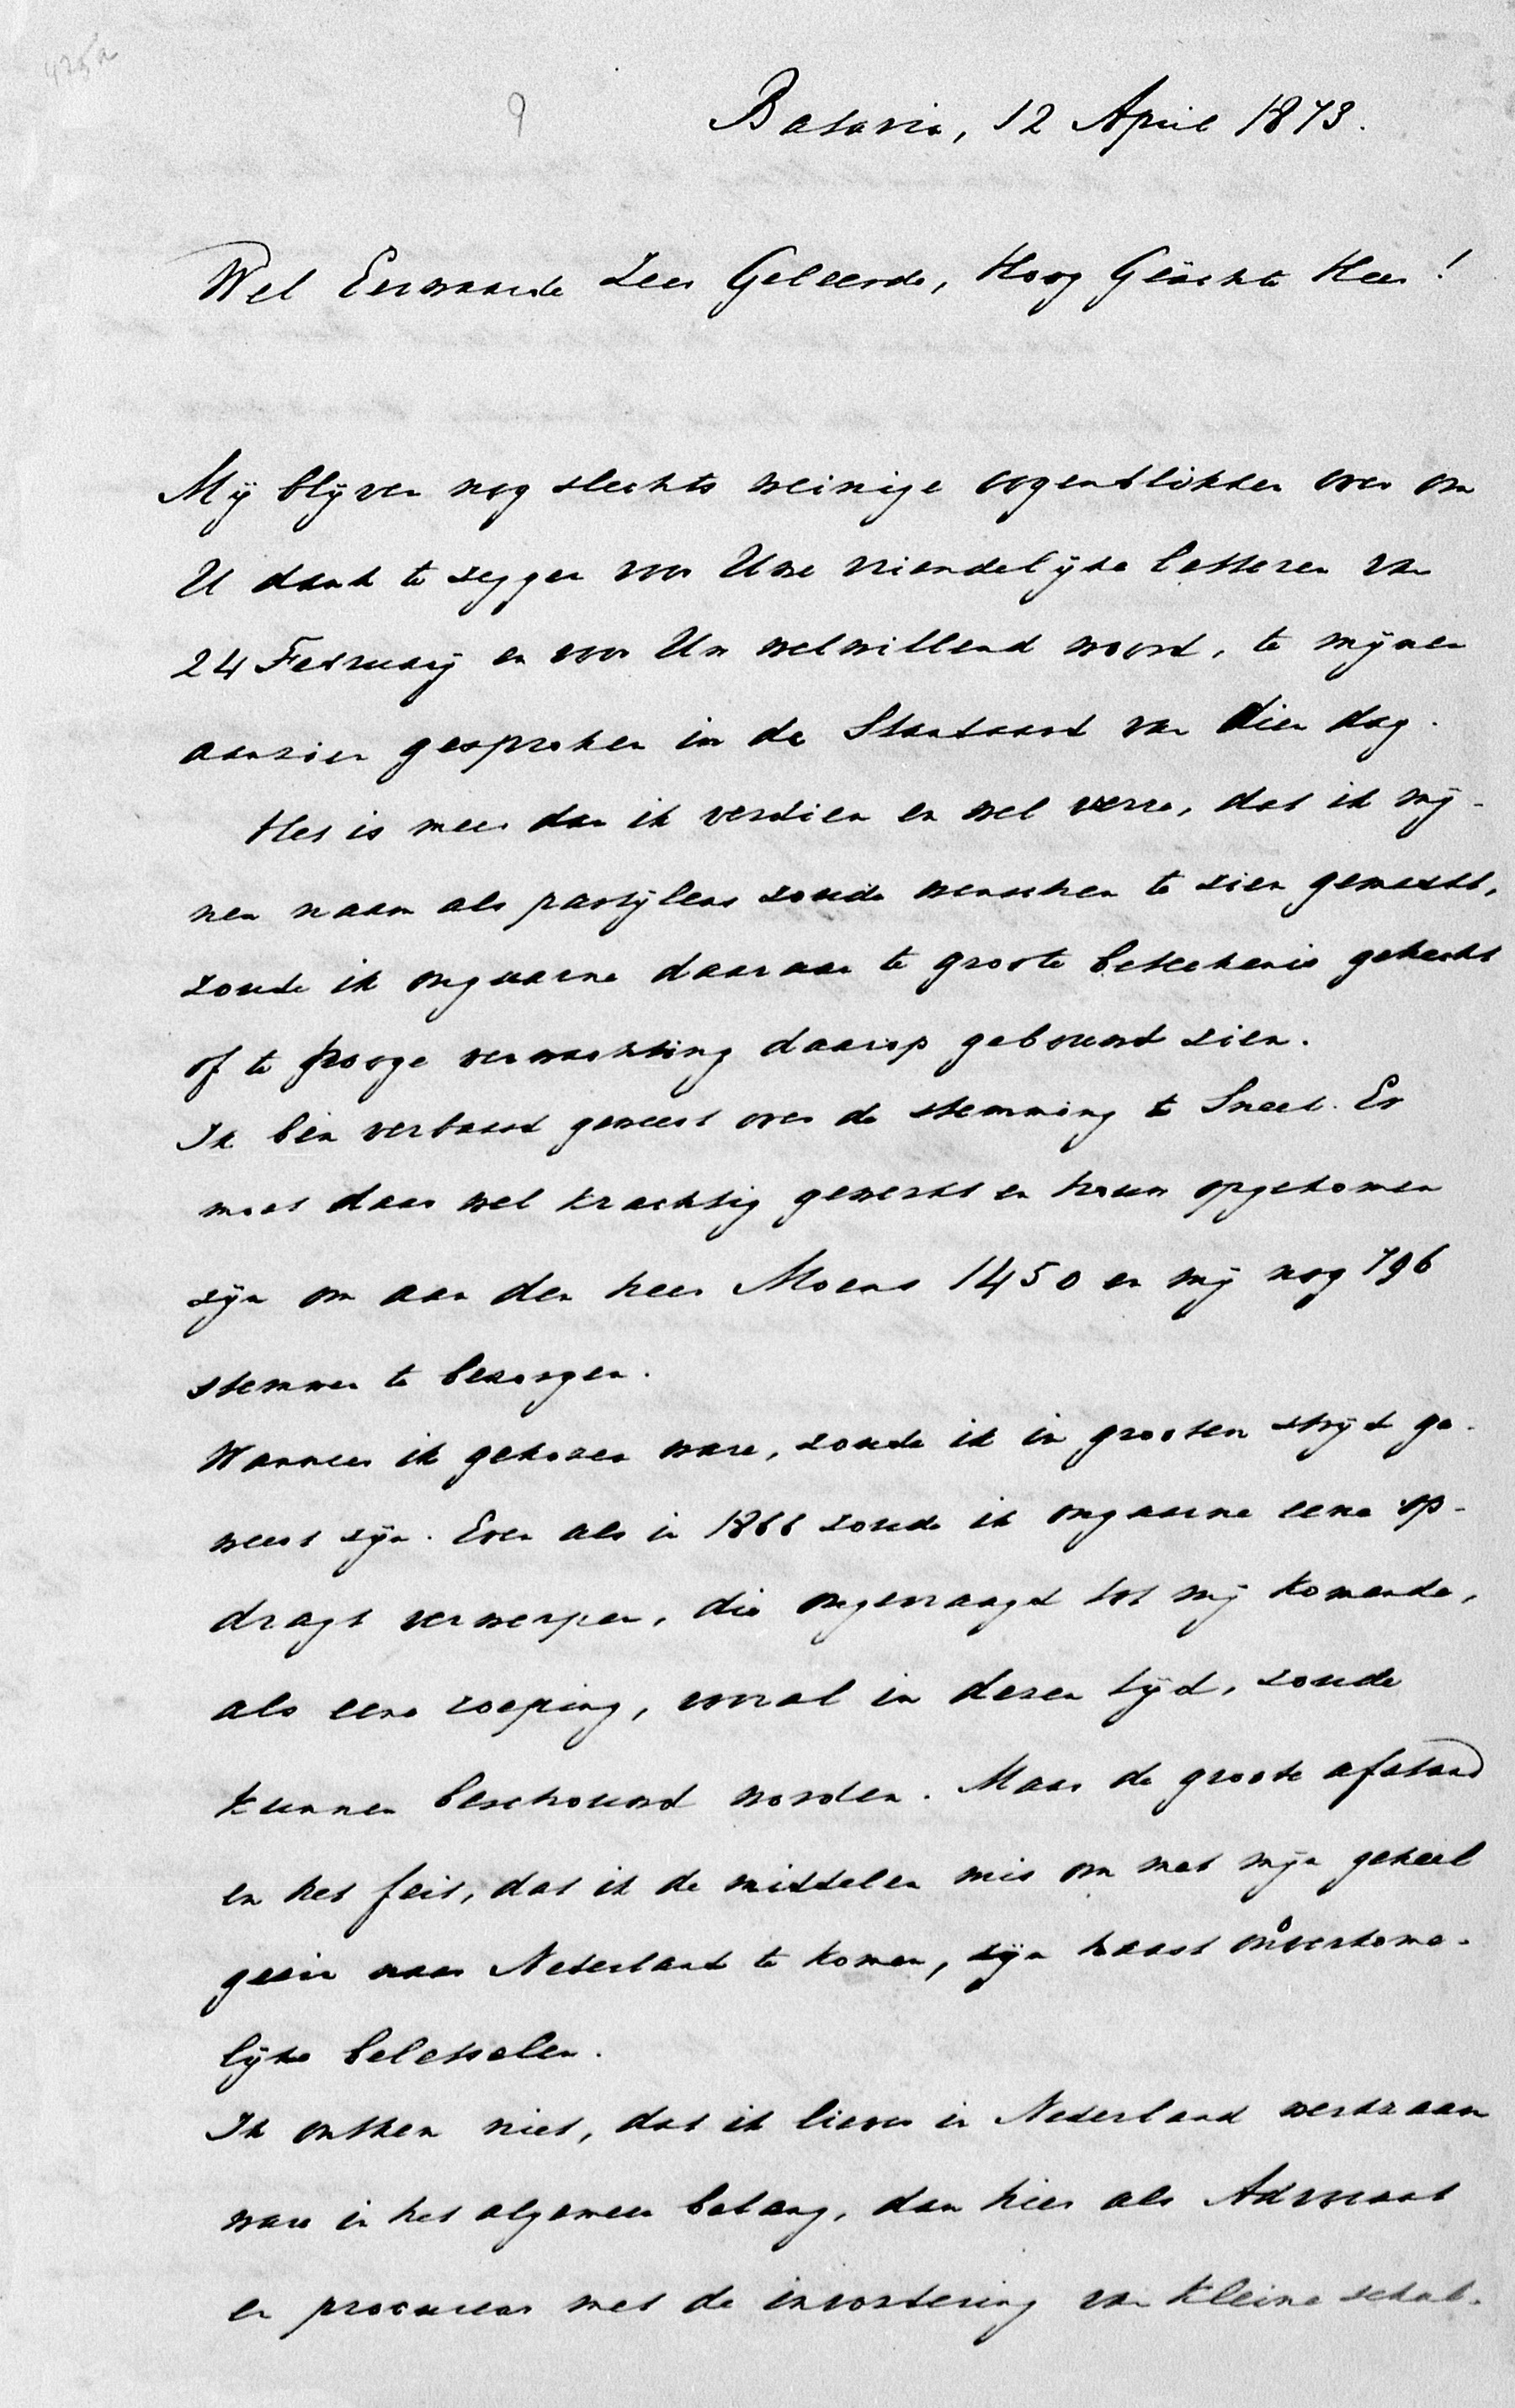 425a
9
Batavia, 12 April 1873.
Wel Eerwaarde Zeer Geleerde, Hoog Geächte Heer!
Mij blijven nog slechts weinige oogenblikken over om
U dank te zeggen voor Uwe vriendelijke letteren van
24 Februarij en voor Uw welwillend woord, te mijnen
aanzien gesproken in de Standaard van dien dag.
Het is meer dan ik verdien en wel verre, dat ik mij-
nen naam als partijleus zoude wenschen te zien gemerkt,
zoude ik ongaarne daaraan te groote beteekenis gehecht
of te hooge verwachting daarop gebouwd zien.
Ik ben verbaasd geweest over de stemming te Sneek. Er
moet daar wel krachtig gewerkt en trouw opgekomen
zijn om aan den heer Moens 1450 en mij nog 796
stemmen te bezorgen.
Wanneer ik gekozen ware, zoude ik in grooten strijd ge-
weest zijn. Even als in 1866 zoude ik ongaarne eene op-
dragt verwerpen, die ongevraagd tot mij komende,
als eene roeping, vooral in dezen tijd, zoude
kunnen beschouwd worden. Maar de groote afstand
en het feit, dat ik de middelen mis om met mijn geheel
gezin naar Nederland te komen, zijn haast onoverkome-
lijke beletselen.
Ik ontken niet, dat ik liever in Nederland werkzaam
ware in het algemeen belang, dan hier als Advocaat
en procureur met de invordering van kleine schul-